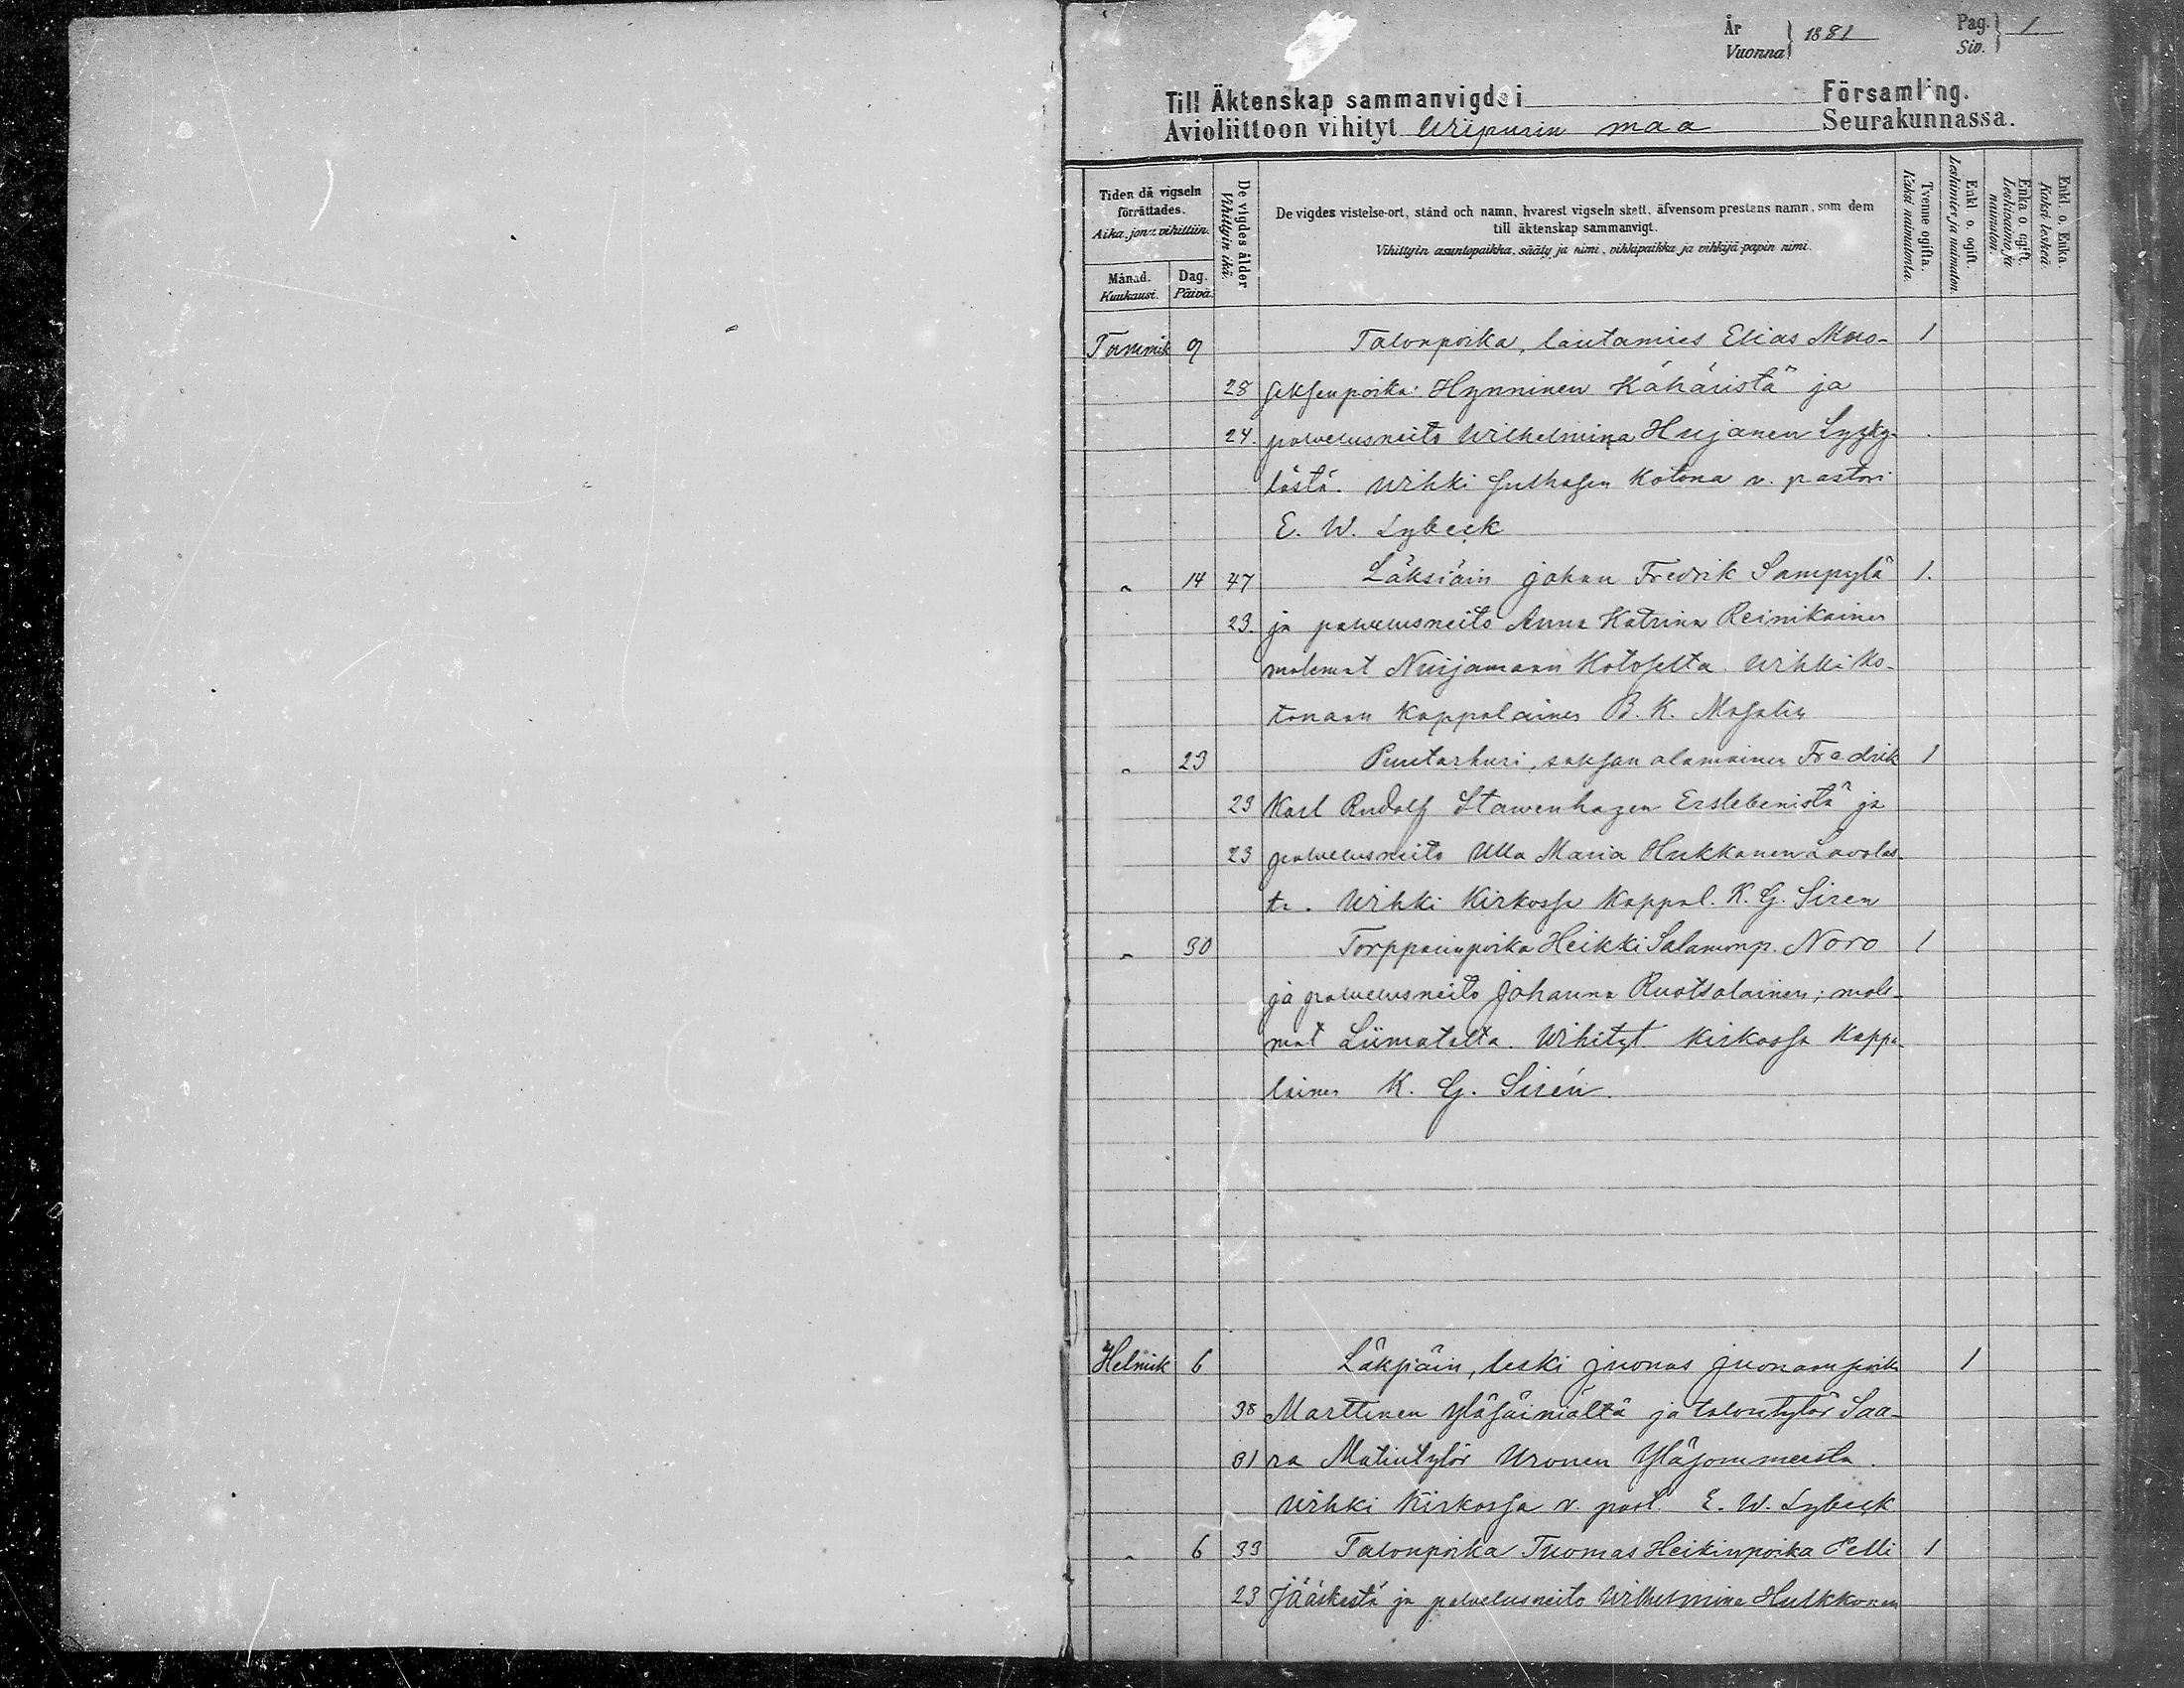 År
Vuonna } 1881
Pag.
Siv. } 1.
Till Äktenskap sammanvigde i Församling.
Avioliittoon vihityt Wiipurin maa Seurakunnassa.
Tiden då vigseln förrättades.
Aika, jona vihittiin.
Månad.
Kuukausi.
Dag.
Päivä.
De vigdes ålder
Vihittyin ikä.
De vigdes vistelse-ort, stånd och namn, hvarest vigseln skett, äfvensom prestens namn, som dem
till äktenskap sammanvigt.
Vihittyin asuntopaikka, sääty ja nimi, vihkipaikka ja vihkijä-papin nimi.
Tvenne ogifta.
Kaksi naimatonta.
Enkl. o. ogift.
Leskimies ja naimaton.
Enka o. ogift.
Leskivaimo ja naimaton.
Enkl. o. Enka.
Kaksi leskeä.
Tammik 9 Talonpoika, lautamies Elias 1
28 Hynninen Kähäristä ja
24. palvelusneito Wilhelmina Hujanen Lyyky-
lästä. Wihki Kotona v. pastori
E. W. Lybeck
" 14 47 Läksiäin Johan Fredrik Sampylä 1.
23. ja palvelusneito Anna Katrina Reinikainen
molemat Nuijamaan Wihki ko-
tonaan Kappalainen B. K.
" 23 Puutarhuri, saksan alamainen Fredrik 1
23 Karl Rudolf Stawenhagen Erslebenistä ja
23 palvelusneito Ulla Maria Hukkanen Lavolas-
ta. Wihki Kirkossa Kappal. K. G. Siren
" 30 Torpparinpoika Heikki Salamonp. Noro 1
ja palvelusneito Johanna Ruotsalainen; mole-
mat Liimatalta. Wihityt Kirkossa Kappa-
lainen K. G. Sirén.
Helmik 6 Läksiäin, leski Juonas Juonaanpoika 1
38 Marttinen Yläsäiniältä ja talontytär Saa-
31 ra Matintytär Uronen Yläsommeesta.
Wihki Kirkossa v. past. E. W. Lybeck
" 6 33 Talonpoika Tuomas Heikinpoika Pelli 1
23 Jääskestä ja palvelusneito Wilhelmina Hulkkonen